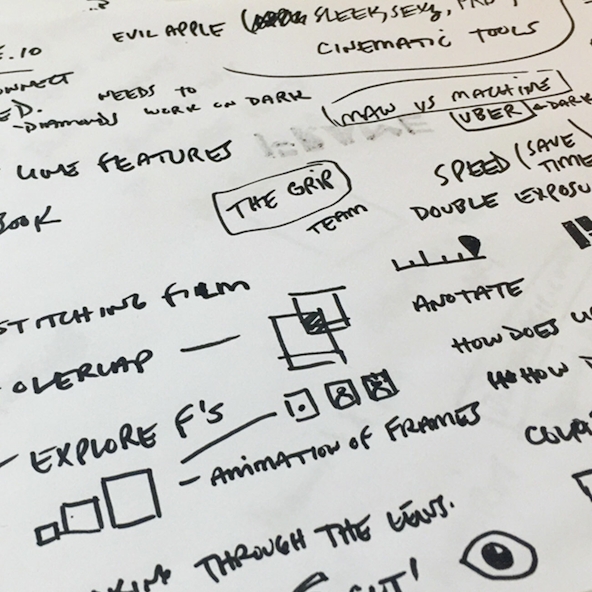 EVIL APPLE ( SLEEK, SEXY,
CINEMATIC TOOLS
E.10
ED. NEEDS TO
-DIAMONDS WORK ON DARK
MAN VS MACHINE
UBER DARK
FEATURES
THE GRIP
TEAM
SPEED (SAVE
TIME
DOUBLE EXPOSU
BOOK
ANOTATE
STITCHING FILM
OVERLAP
HOW DOES U
HOW D
EXPLORE F'S
- ANIMATION OF FRAMES
COUPL
KING THROUGH THE LENS.
OUT!